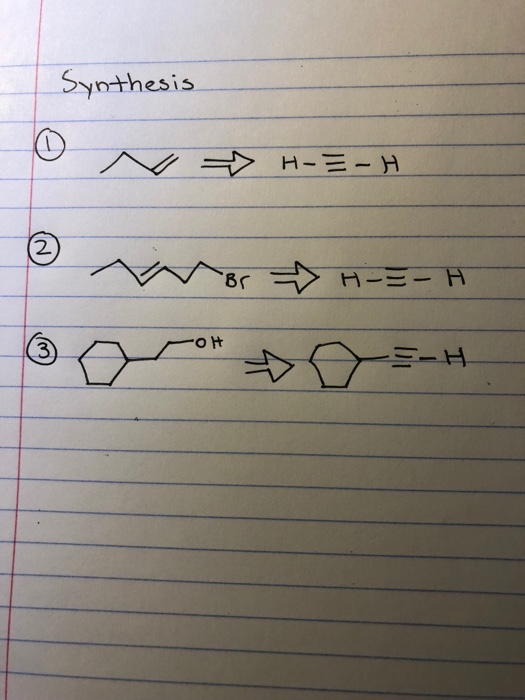 Synthesis
① ⇒ H-≡-H
② Br ⇒ H-≡-H
③ OH ⇒ ≡-H